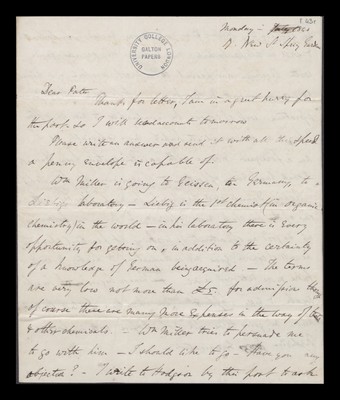 Monday –
17 New St Spring Gardens
UNIVERSITY COLLEGE LONDON
GALTON
PAPERS
Dear Pater
Thanks for letter, I am in a great hurry for
the post so I will send accounts tomorrow
Please write an answer and send it with all the speed
a penny envelope is capable of.
Wm Miller is going to Giessen, in Germany, to
Liebig's laboratory – Liebig is the 1st chemist (in organic
chemistry) in the world – in his laboratory there is every
opportunity for getting on, in addition to the certainty
of a knowledge of German being acquired – The terms
are very low not more than £5. for admission
of course there are many more expenses in the way of
& other chemicals. – Wm Miller tries to persuade me
to go with him – I should like to go – Have you any
objection? – I write to Hodgson by this post to ask